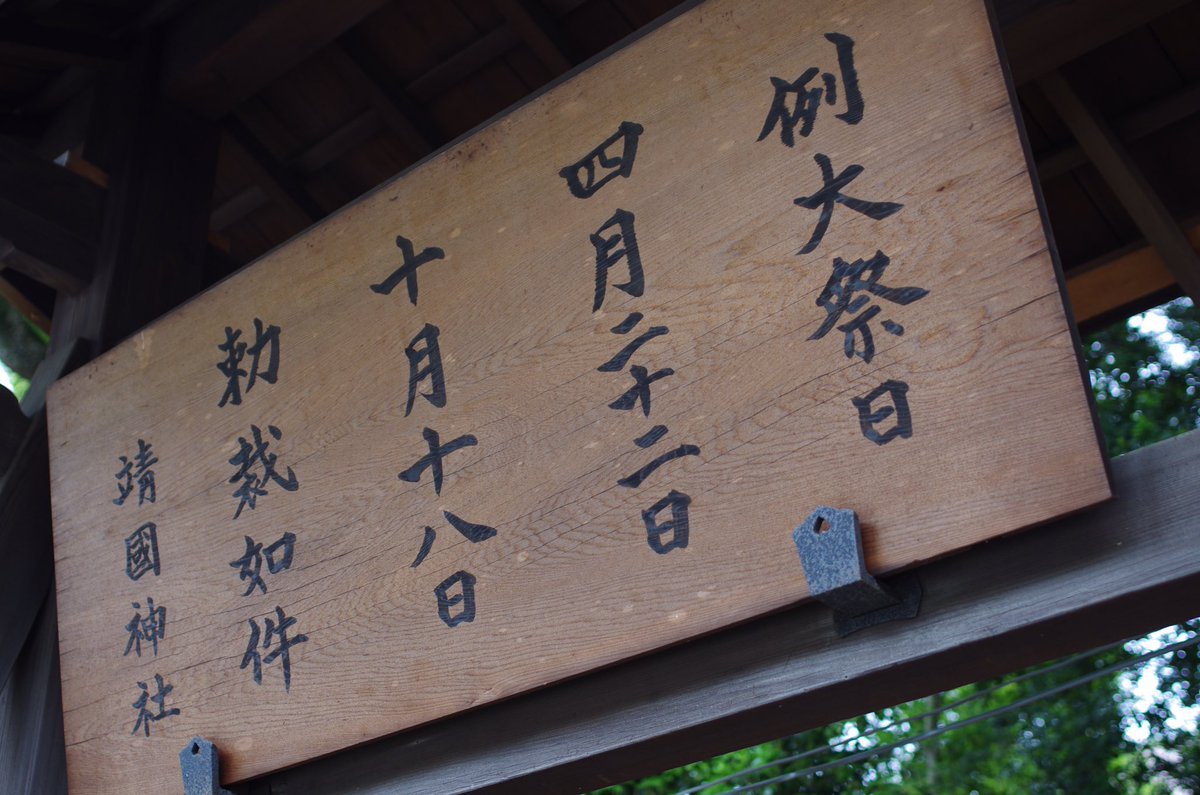 例大祭日
四月二十二日
十月十八日
勅裁如件
靖國神社